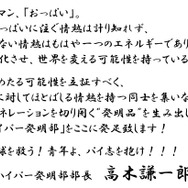 マン、「おっぱい」。
っぱいに注ぐ情熱は計り知れず、
ない情熱はもはや一つのエネルギーであり
化させ、世界を変える可能性を持っている
めたる可能性を立証すべく、
に対してほとばしる情熱を持つ同士を集いな
ネレーションを切り開く“発明品”を生み出し
イパー発明部」をここに発足致します!
球を救う!青年よ、パイ志を抱け!!!
ハイパー発明部部長 高木謙一郎